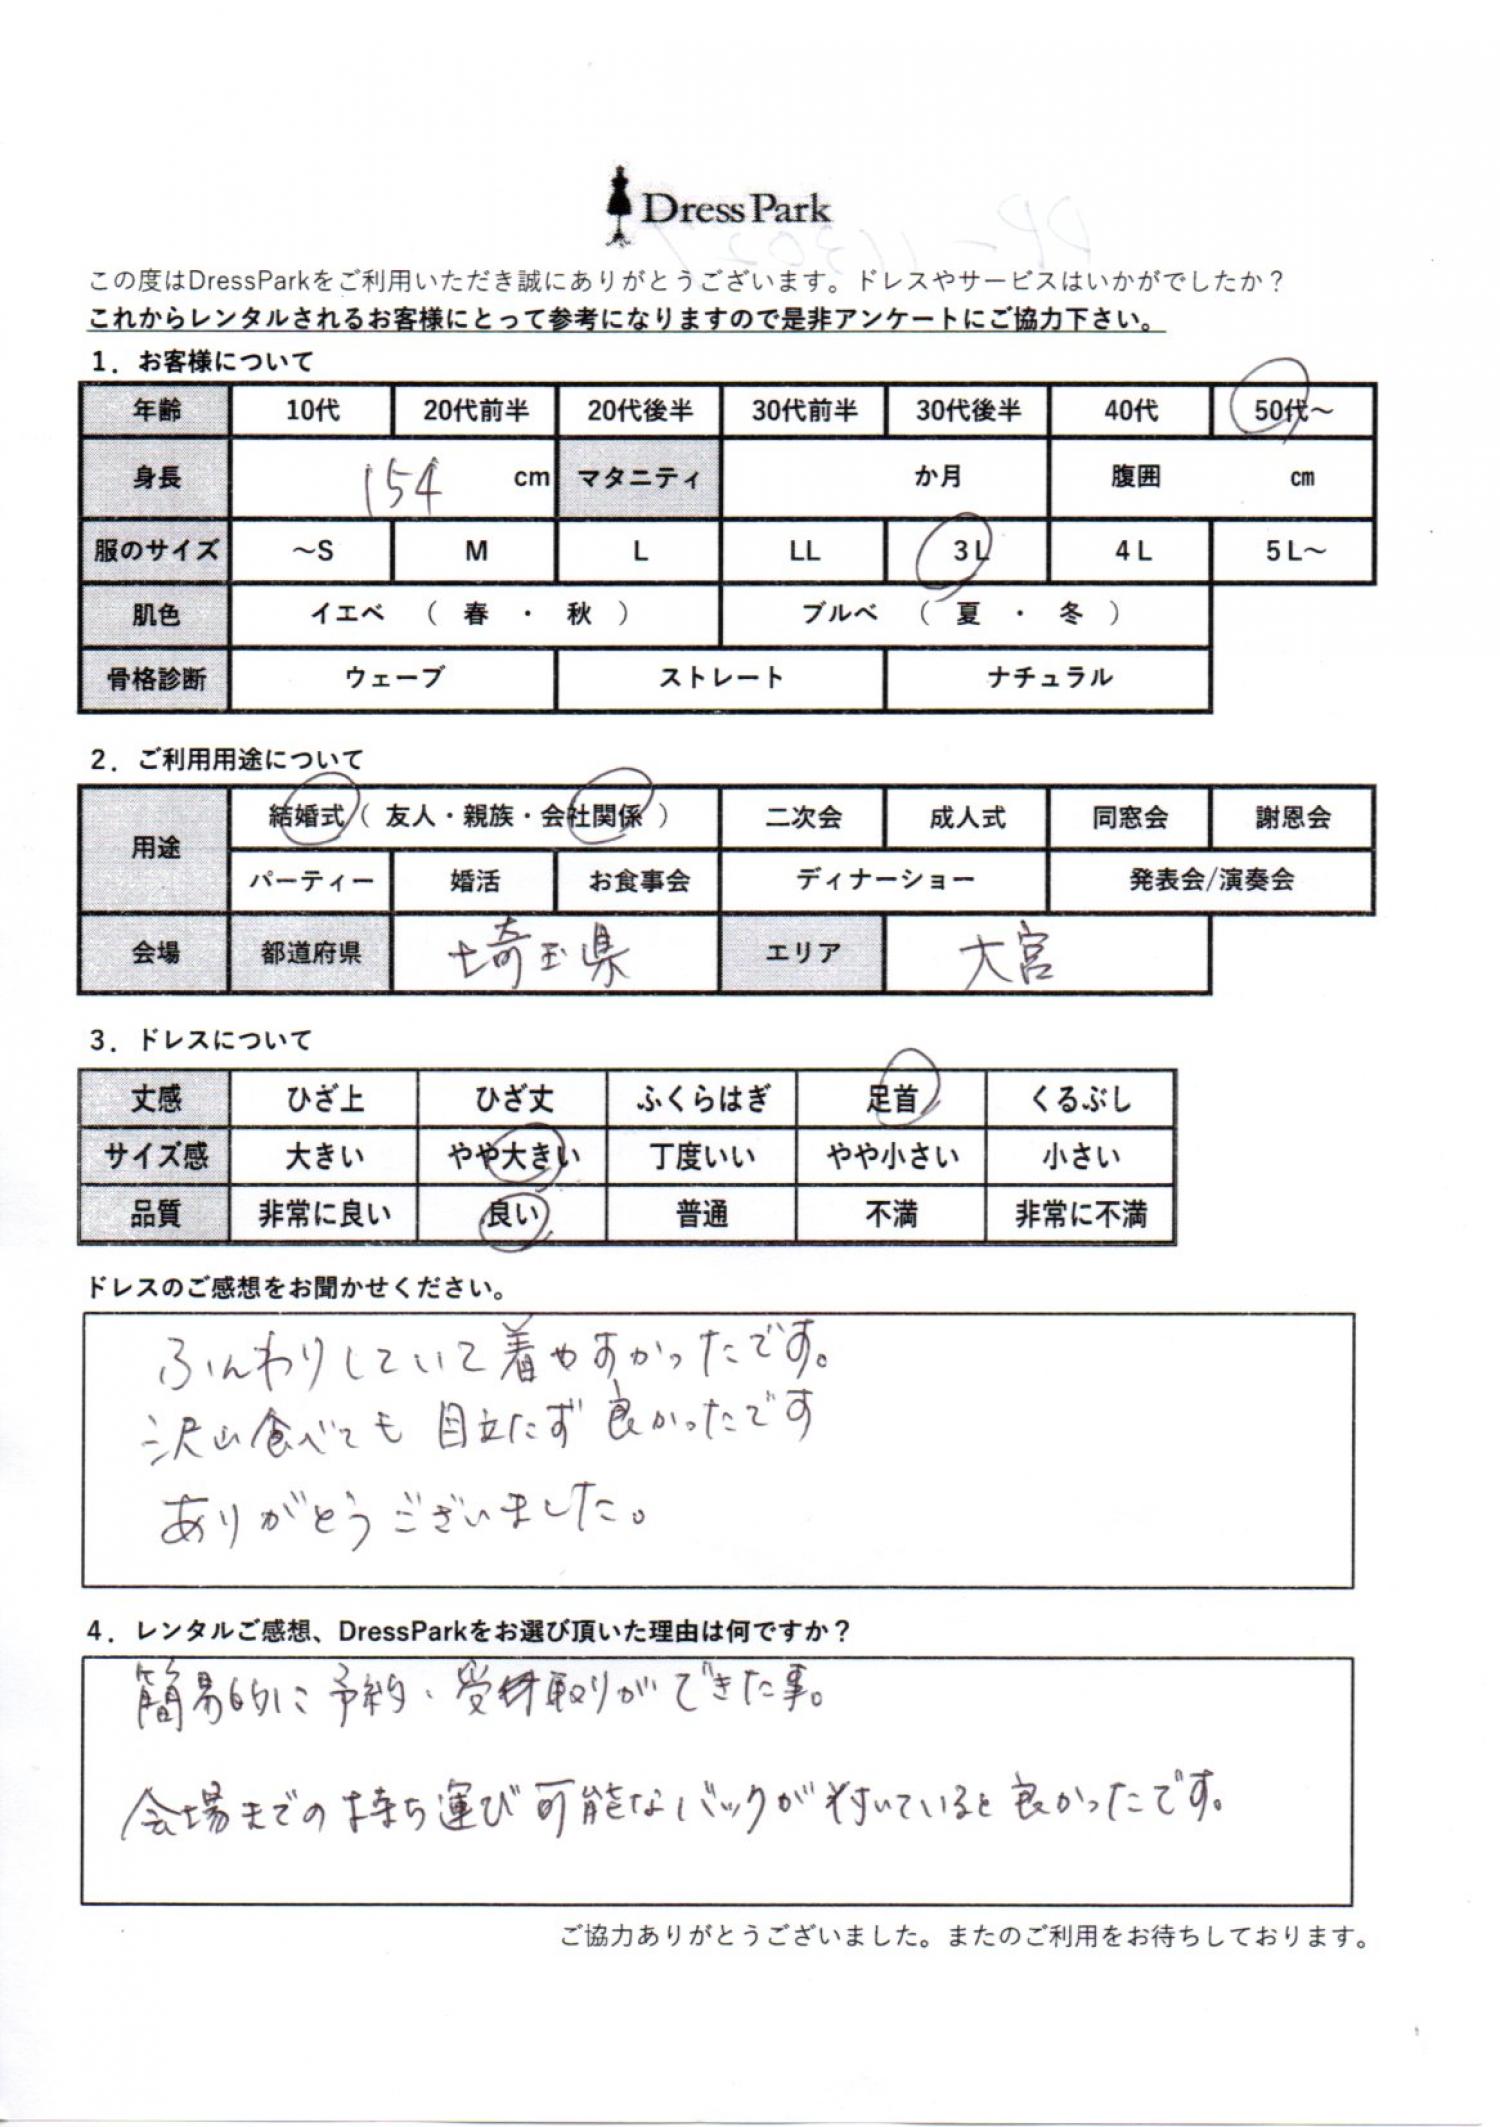 Dress Park
この度はDressParkをご利用いただき誠にありがとうございます。ドレスやサービスはいかがでしたか？
これからレンタルされるお客様にとって参考になりますので是非アンケートにご協力下さい。
1．お客様について
年齢 10代 20代前半 20代後半 30代前半 30代後半 40代 50代～
身長 154 cm マタニティ か月 腹囲 ㎝
服のサイズ ～S M L LL 3L 4L 5L～
肌色 イエベ （ 春 ・ 秋 ） ブルベ （ 夏 ・ 冬 ）
骨格診断 ウェーブ ストレート ナチュラル
2．ご利用用途について
用途 結婚式（ 友人・親族・会社関係 ） 二次会 成人式 同窓会 謝恩会
パーティー 婚活 お食事会 ディナーショー 発表会/演奏会
会場 都道府県 埼玉県 エリア 大宮
3．ドレスについて
丈感 ひざ上 ひざ丈 ふくらはぎ 足首 くるぶし
サイズ感 大きい やや大きい 丁度いい やや小さい 小さい
品質 非常に良い 良い 普通 不満 非常に不満
ドレスのご感想をお聞かせください。
ふんわりしていて着やすかったです。
沢山食べても目立たず良かったです
ありがとうございました。
4．レンタルご感想、DressParkをお選び頂いた理由は何ですか？
簡易的に予約、受け取りができた事。
会場までの持ち運び可能なバックが付いていると良かったです。
ご協力ありがとうございました。またのご利用をお待ちしております。